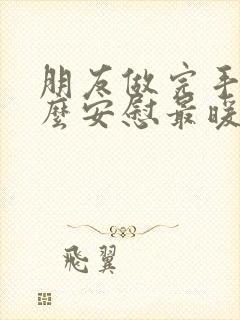 朋友做完手
麼安慰最暖
飛翼